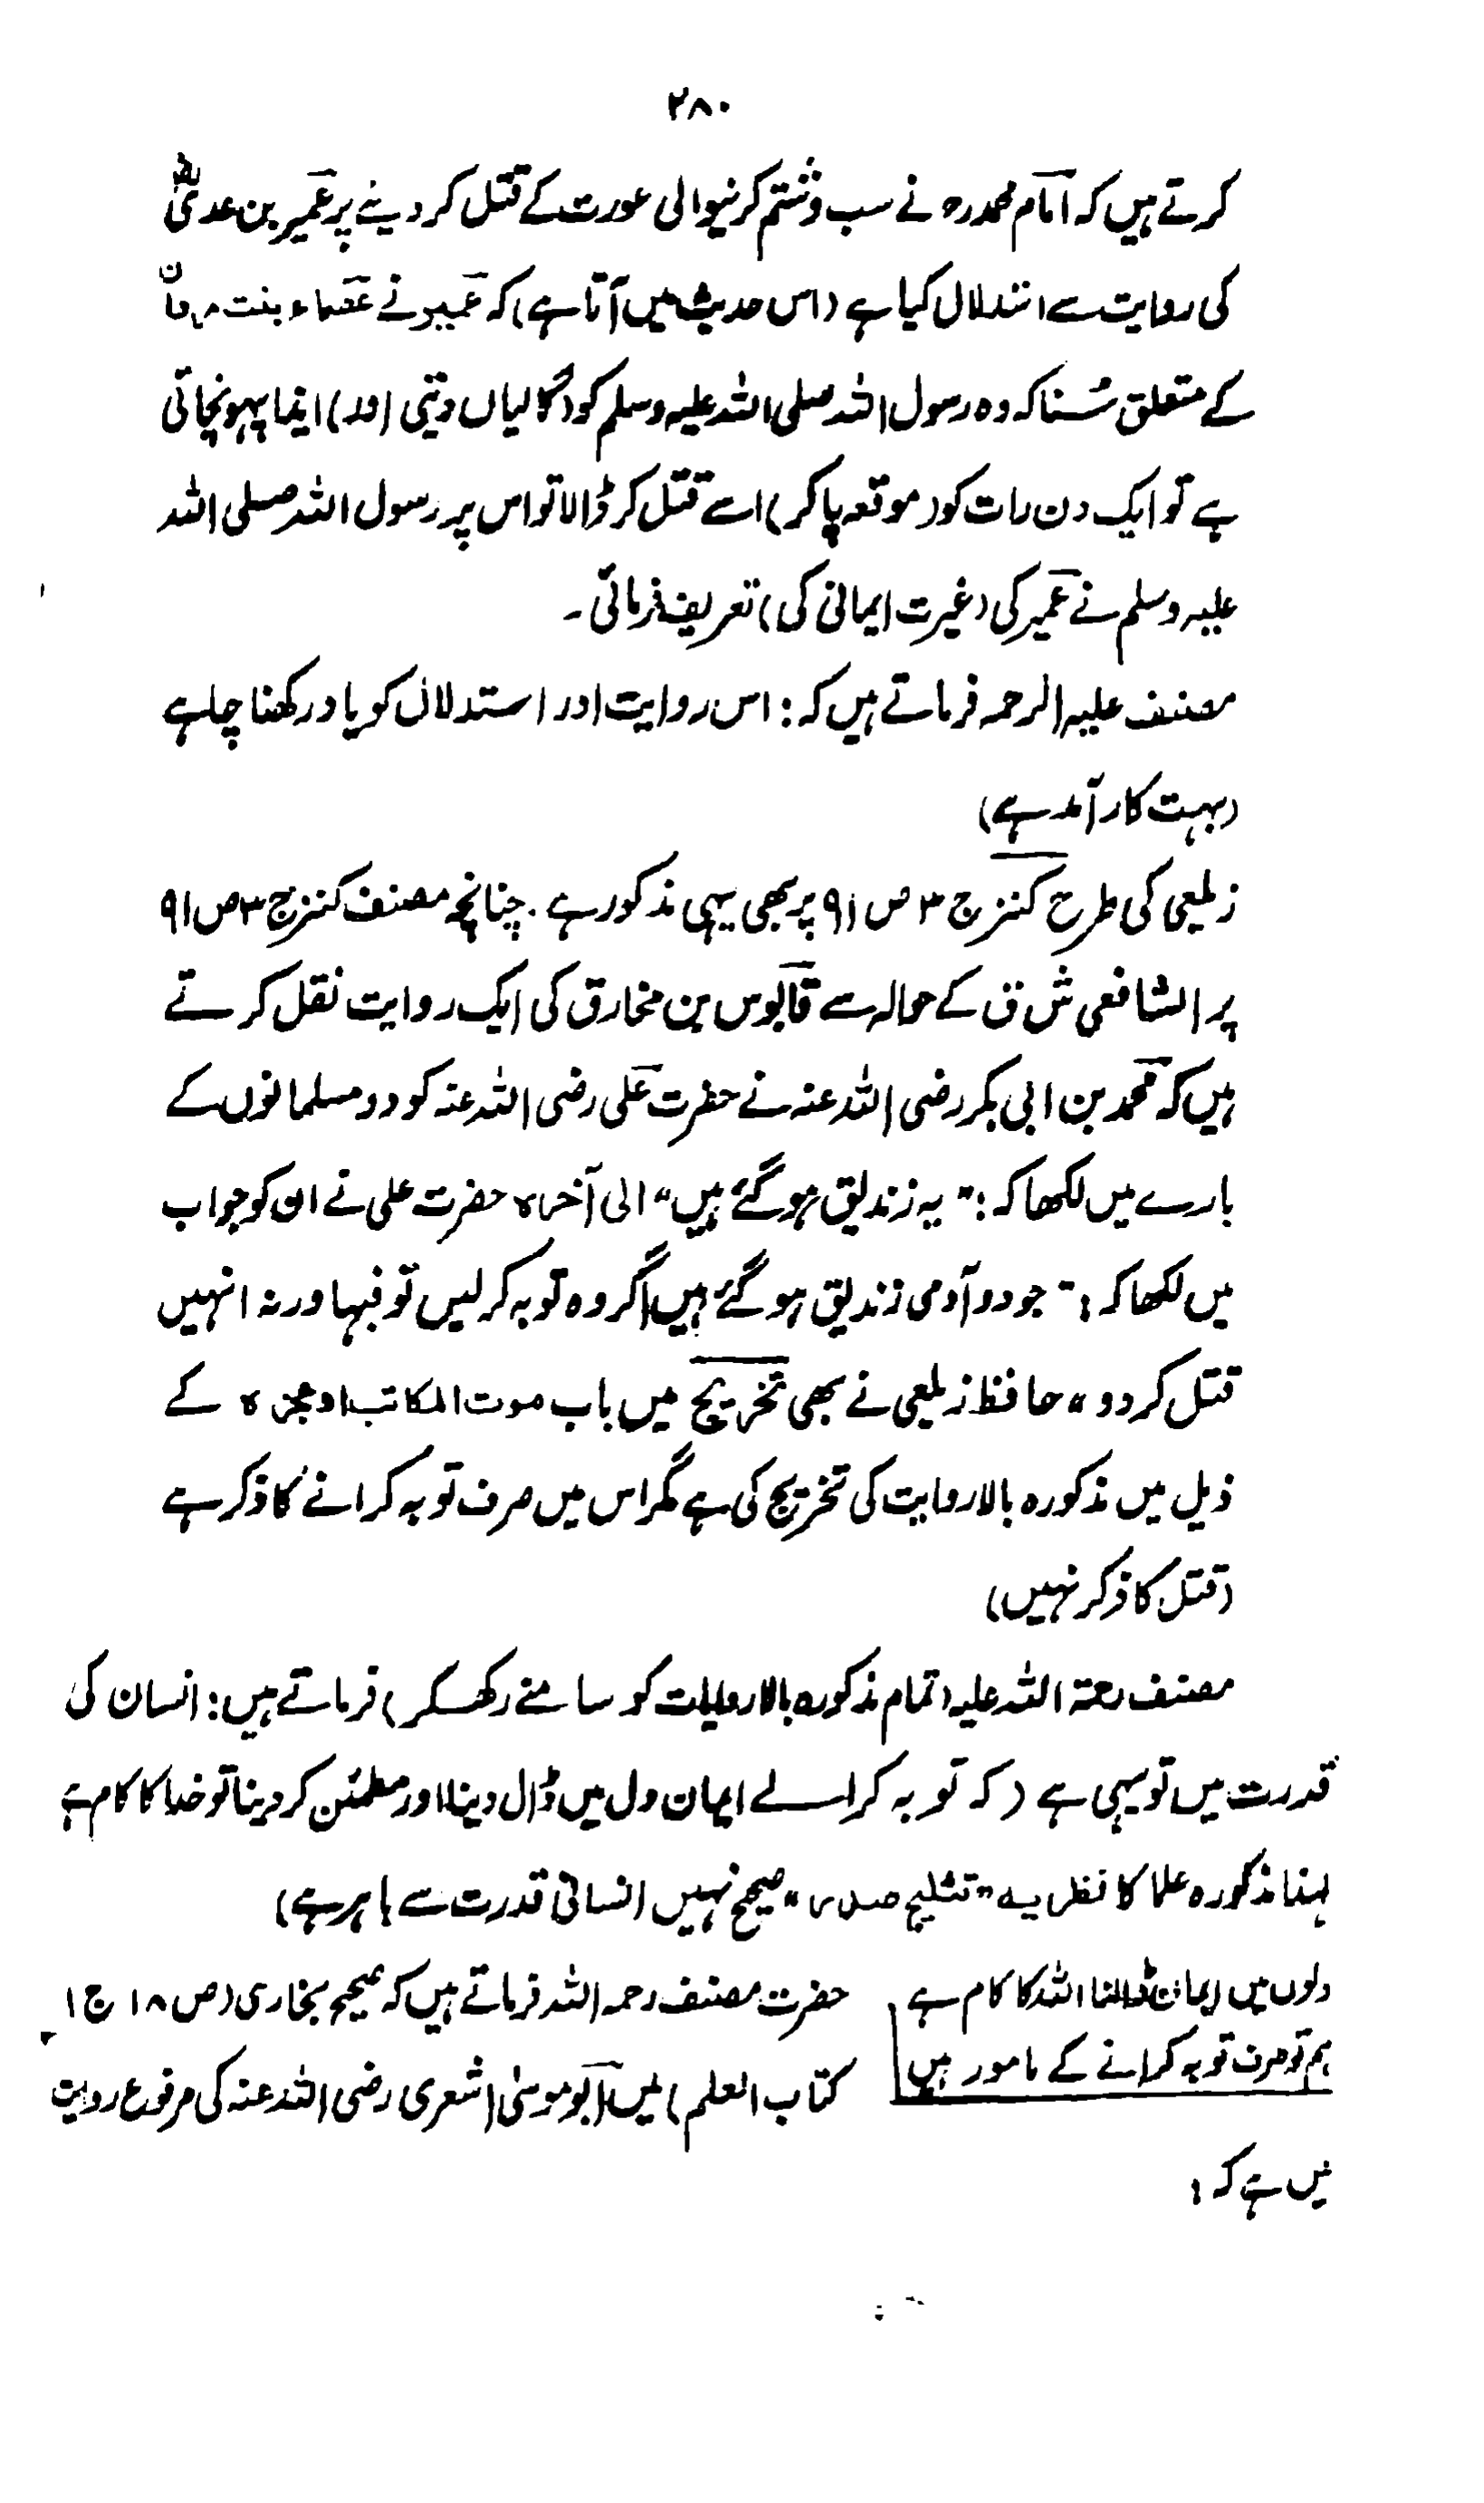 ۲۸۰
کرتے ہیں کہ امام محمد رہ نے سب وشتم کرنیوالی عورت کے قتل کر دینے پر عمیر بن عدیؓ
کی روایت سے استدلال کیا ہے (اس حدیث میں آتا ہے) کہ عمیر نے عصماء بنت مروان
کے متعلق سُنا کہ وہ رسول اللہ صلی اللہ علیہ وسلم کو (گالیاں دیتی اور) ایذا پہونچاتی
ہے تو ایک دن رات کو (موقعہ پا کر) اسے قتل کر ڈالا تو اس پر رسول اللہ صلی اللہ
علیہ وسلم نے عمیر کی (غیرت ایمانی کی) تعریف فرمائی۔
مصنف علیہ الرحمہ فرماتے ہیں کہ: اس روایت اور استدلال کو یاد رکھنا چاہئے
(بہت کار آمد ہے)
زیلعی کی طرح کنز ج ۳ ص ۹۱ پر بھی یہی مذکور ہے۔ چنانچہ مصنف کنز ج ۳ ص ۹۱
پر الشافعی ش ق کے حوالہ سے قابوس بن مخارق کی ایک روایت نقل کرتے
ہیں کہ محمد بن ابی بکر رضی اللہ عنہ نے حضرت علی رضی اللہ عنہ کو دو مسلمانوں کے
بارے میں لکھا کہ: "یہ زندیق ہو گئے ہیں" الی آخرہ حضرت علی نے ان کو جواب
میں لکھا کہ: "جو دو آدمی زندیق ہو گئے ہیں اگر وہ توبہ کر لیں تو فبہا ورنہ انہیں
قتل کر دو" حافظ زیلعی نے بھی تخریج میں باب موت المکاتب او عجزہ کے
ذیل میں مذکورہ بالا روایت کی تخریج کی ہے مگر اس میں صرف توبہ کرانے کا ذکر ہے
(قتل کا ذکر نہیں)
مصنف رحمۃ اللہ علیہ (تمام مذکورہ بالا روایات کو سامنے رکھ کر) فرماتے ہیں: انسان کی
قدرت میں تو یہی ہے (کہ توبہ کرالے ایمان دل میں ڈال دینا اور مطمئن کر دینا تو خدا کا کام ہے
لہٰذا مذکورہ علما کا نظریہ "تثلیج صدر" صحیح نہیں انسانی قدرت سے باہر ہے)
دلوں میں ایمان ڈالنا اللہ کا کام ہے
ہم تو صرف توبہ کرانے کے مامور ہیں
حضرت مصنف رحمہ اللہ فرماتے ہیں کہ صحیح بخاری (ص ۱۸ ج ۱
کتاب العلم) میں ابو موسیٰ اشعری رضی اللہ عنہ کی مرفوع روایت
میں ہے کہ: